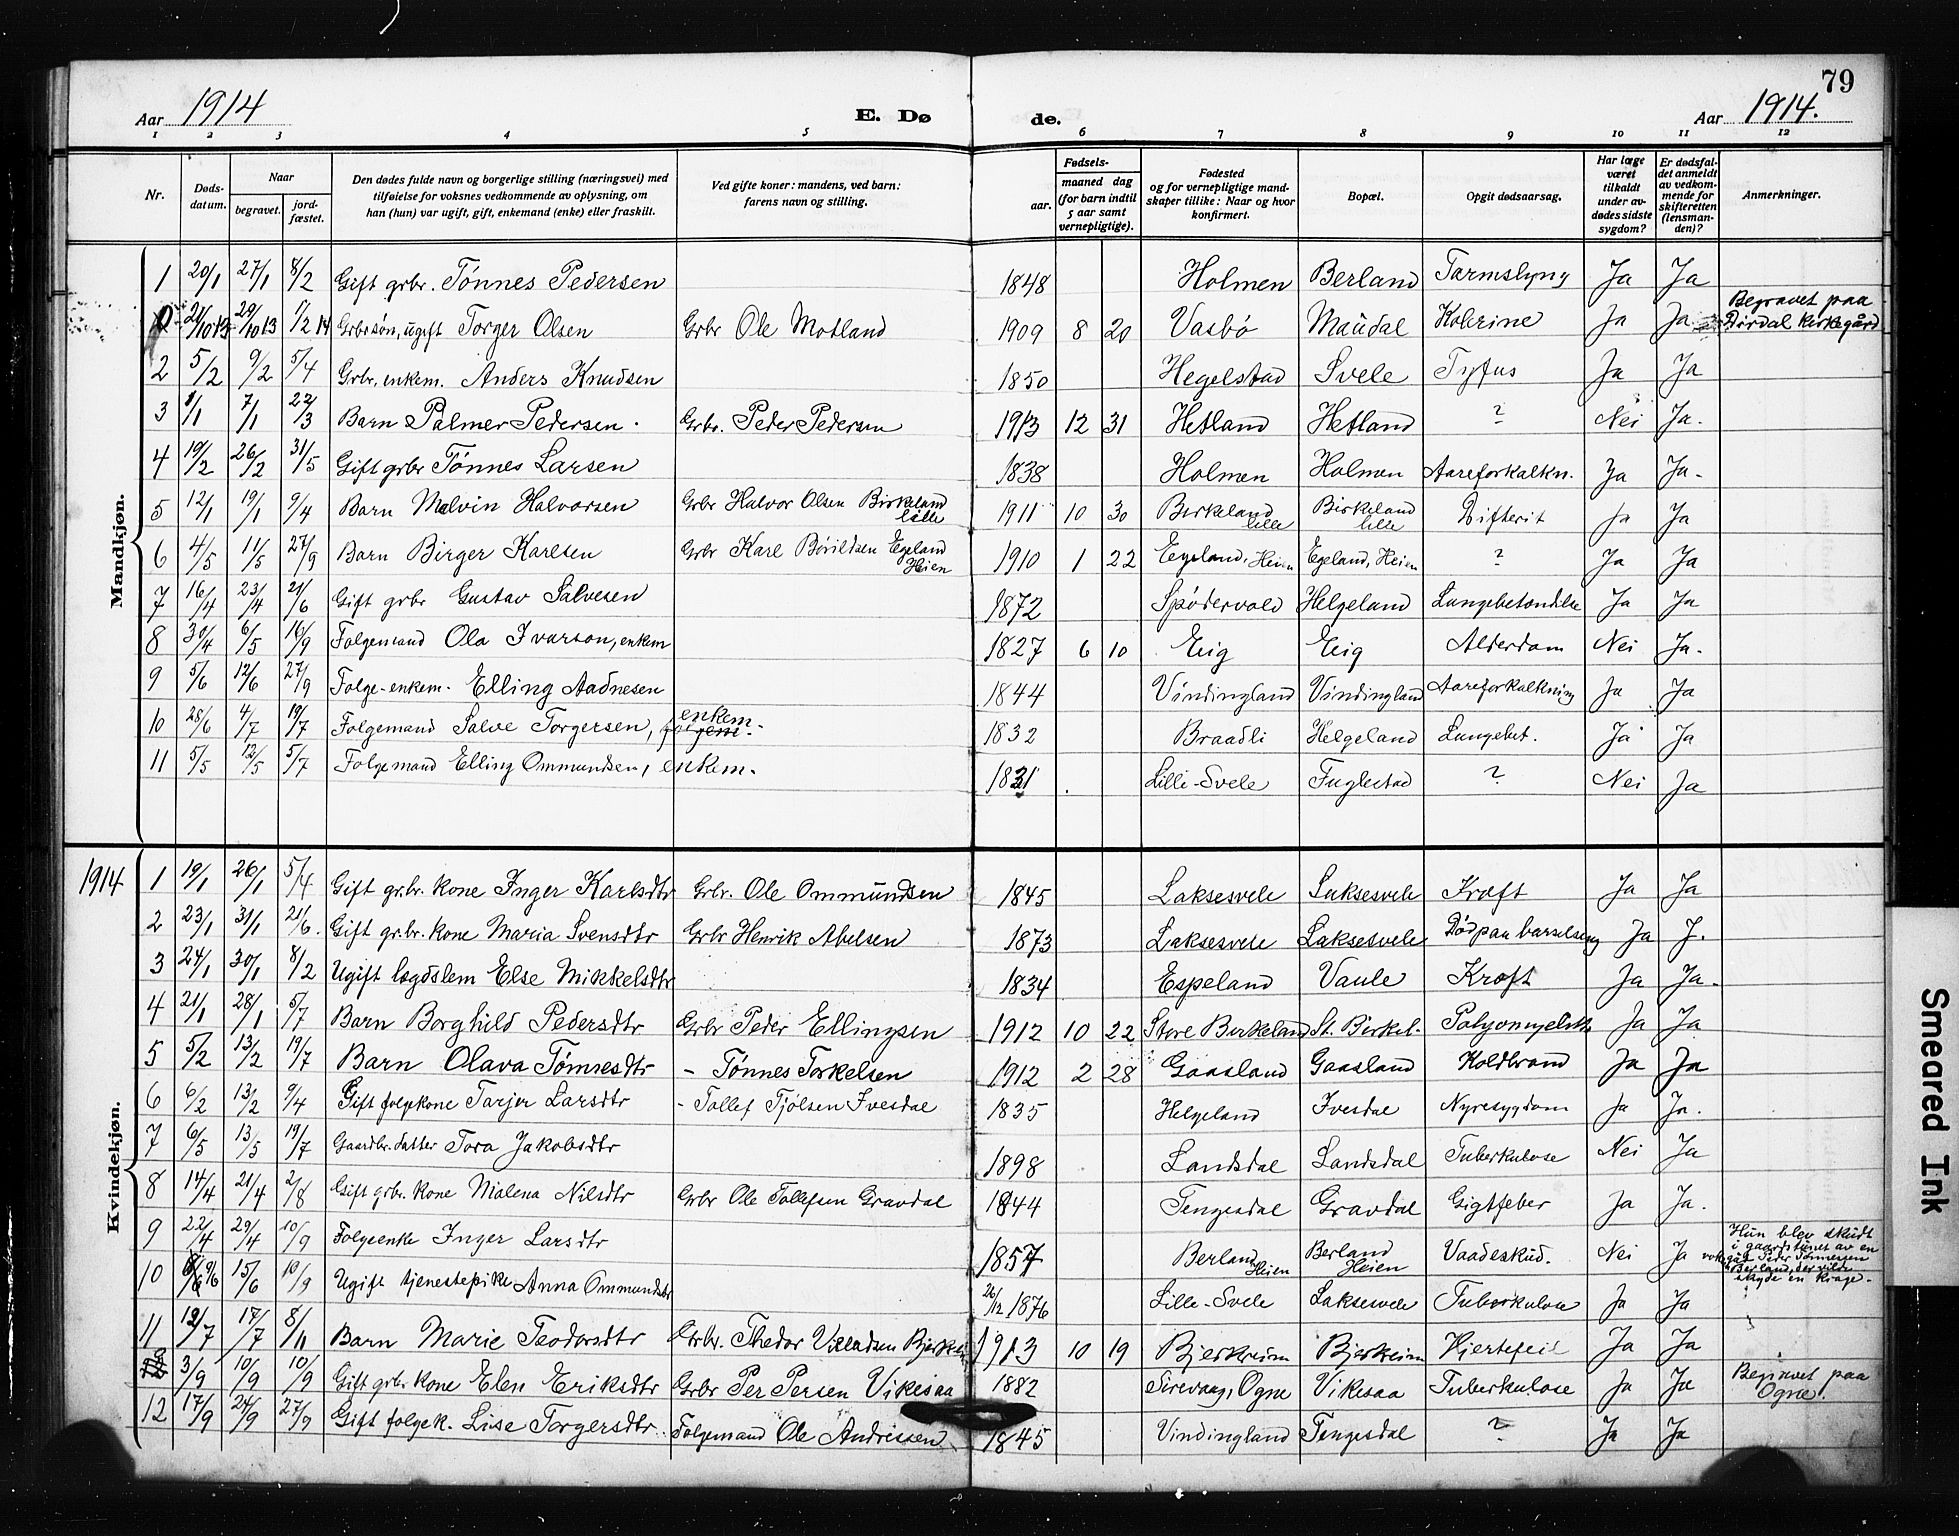 79
Aar 1914 E. Dø de. Aar 1914.
1 2 3 4 5 6 7 8 9 10 11 12
Nr. Døds-datum. Naar begravet. jord-fæstet. Den dødes fulde navn og borgerlige stilling (næringsvei) med tilføielse for voksnes vedkommende av oplysning, om han (hun) var ugift, gift, enkemand (enke) eller fraskilt. Ved gifte koner: mandens, ved barn: farens navn og stilling. Fødsels- aar. maaned dag (for barn indtil 5 aar samt vernepligtige). Fødested og for vernepligtige mand-skaper tillike: Naar og hvor konfirmert. Bopæl. Opgit dødsaarsag. Har læge været tilkaldt under av-dødes sidste sygdom? Er dødsfal-det anmeldt av vedkom-mende for skifteretten (lensman-den)? Anmerkninger.
Mandkjøn.
1 20/1 27/1 8/2 Gift grbr. Tønnes Pedersen 1848 Holmen Berland Tarmslyng Ja Ja
0 21/10 13 29/10 13 1/2 14 Grbr.søn, ugift Torger Olsen Grbr Ole Motland 1909 8 20 Vasbø Maudal Kolerine Ja Ja Begravet paa Dirdal kirkegård
2 5/2 9/2 5/4 Grbr, enkem. Anders Knudsen 1850 Hegelstad Svele Tyfus Ja Ja
3 1/1 7/1 22/3 Barn Palmer Pedersen. Grbr. Peder Pedersen 1913 12 31 Hetland Hetland ? Nei Ja.
4 19/2 26/2 31/5 Gift grbr Tønnes Larsen 1838 Holmen Holmen Aareforkalkn. Ja Ja.
5 12/1 19/1 9/4 Barn Melvin Halvorsen Grbr Halvor Olsen Birkeland lille 1911 10 30 Birkeland lille Birkeland lille Difterit Ja Ja
6 4/5 11/5 27/9 Barn Birger Karlsen Grbr Karl Børildsen Egeland Heien 1910 1 22 Egeland, Heien Egeland, Heien ? Ja Ja
7 16/4 23/4 21/6 Gift grbr Gustav Salvesen 1872 Spødervold Helgeland Lungebetændelse Ja Ja
8 30/4 6/5 16/9 Folgemand Ola Ivarson, enkem 1827 6 10 Eig Eig Alderdom Nei Ja.
9 5/6 12/6 27/9 Folge-enkem. Elling Aadnesen 1844 Vindingland Vindingland Aareforkalkning Ja Ja
10 28/6 4/7 19/7 Folgemand Salve Torgersen, enkem. 1832 Braadli Helgeland Lungebet. Ja Ja
11 5/5 12/5 5/7 Folgemand Elling Ommundsen, enkem. 1831 Lille-Svele Fuglestad ? Nei Ja
1914
Kvindekjøn.
1 19/1 26/1 5/4 Gift gr.br. kone Inger Karlsdtr Grbr. Ole Ommundsen 1845 Laksesvele Laksesvele Kræft Ja Ja
2 23/1 31/1 21/6. Gift gr.br. kone Maria Svensdtr Grbr Henrik Abelsen 1873 Laksesvele Laksesvele Død paa barselseng Ja J.
3 24/1 30/1 8/2 Ugift lægdslem Else Mikkelsdtr 1834 Espeland Vaule Kræft Ja Ja.
4 21/1 28/1 5/7 Barn Borghild Pedersdtr Grbr Peder Ellingsen 1912 10 22 Store Birkeland St. Birkel. Ja Ja
5 5/2 13/2 19/7 Barn Olava Tønnesdtr - Tønnes Torkelsen 1912 2 28 Gaasland Gaasland Koldbrand Ja Ja
6 6/2 13/2 9/4 Gift folgekone Tarjer Larsdtr - Tollef Tjølsen Ivesdal 1835 Helgeland Ivesdal Nyresygdom Ja Ja.
7 6/5 13/5 19/7 Gaardbr. datter Tora Jakobsdtr 1898 Landsdal Landsdal Tuberkulose Nei Ja
8 14/4 21/4 2/8 Gift grbr. kone Malena Nilsdtr Grbr Ole Tollefsen Gravdal 1844 Tengesdal Gravdal Gigtfeber Ja Ja.
9 22/4 29/4 10/9 Folgeenke Inger Larsdtr 1857 Berland Heien Berland Heien Vaadeskud. Nei Ja Hun blev skudt i gaardstunet av en Peder Tønnessen Berland, der vilde skyde en kråge.
10 9/6 15/6 10/9 Ugift tjenestepike Anna Ommundsdtr 26/12 1876 Lille-Svele Laksesvele Tuberkulose Ja Ja
11 12/7 17/7 8/11 Barn Marie Teodorsdtr Grbr. Thedor Villadsen 1913 10 19 Bjerkreim Bjerkreim Hjertefeil Ja Ja
3/9 10/9 10/9 Gift grbr kone Elen Eriksdtr Grbr Per Persen Vikesaa 1882 Sirevaag, Ogne Vikesaa Tuberkulose Ja Ja Begravet paa Ogne.
12 17/9 24/9 27/9 Gift folgek. Lise Torgersdtr. Folgemand Ole Andressen 1845 Vindingland Tengesdal ? Ja Ja
Smeared Ink